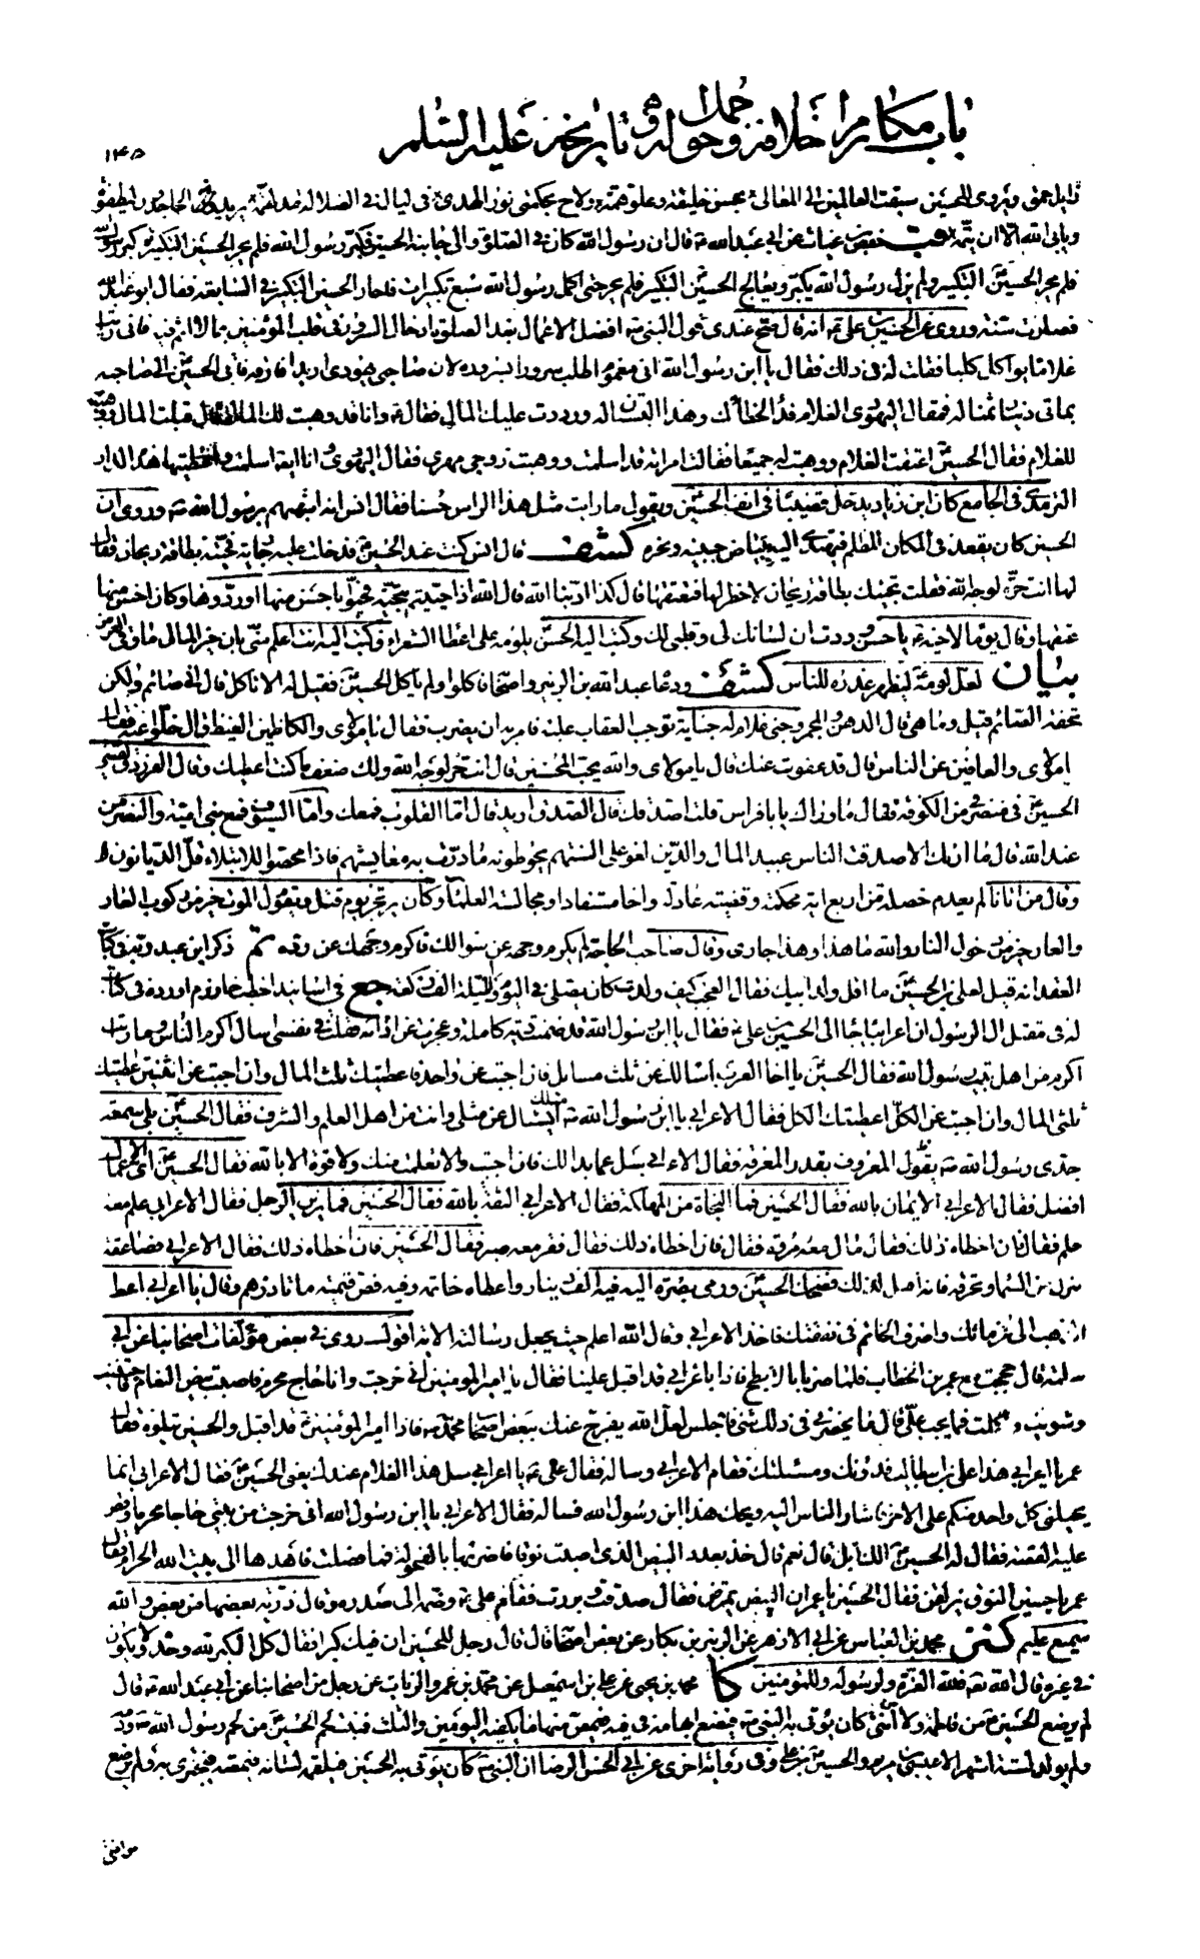 باب مكارم أخلاقه وجمل أحواله وتاريخه عليه السلم
١٤٥
ويروى للحسين سبقت العالمين الى المعالى بحسن خليقة وعلو همة ولاح بحكمتى نور الهدى فى ليال فى الضلالة مدلهمة يريد الجاحدون ليطفؤ
ويابى الله الا ان يتمه حفص بن غياث عن ابى عبد الله ع قال ان رسول الله كان فى الصلوة والى جانبه الحسين فكبر رسول الله فلم يحر الحسين التكبير ثم كبر رسول الله
فلم يحر الحسين التكبير ولم يزل رسول الله يكبر ويعالج الحسين التكبير فلم يحر حتى اكمل رسول الله سبع تكبيرات فاحار الحسين التكبير فى السابعة فقال ابو عبد الله
فصارت سنة وروى عن الحسين بن على ع انه قال صح عندى قول النبى ص افضل الاعمال بعد الصلوة ادخال السرور فى قلب المؤمنين بما لا اثم فيه فانى رايت
غلاما يواكل كلبا فقلت له فى ذلك فقال يا ابن رسول الله انى مغموم اطلب سرورا بسروره لان صاحبى يهودى اريد افارقه فاتى الحسين الى صاحبه
بماتى دينار ثمنا له فقال اليهودى الغلام فداء لخطاك وهذا البستان له ورددت عليك المال فقال ع وانا قد وهبت لك المال قال قبلت المال ووهبته
للغلام فقال الحسين اعتقت الغلام ووهبته له جميعا فقالت امراته قد اسلمت ووهبت زوجى مهرى فقال اليهودى وانا ايضا اسلمت واعطيتها هذه الدار
الترمذى فى الجامع كان ابن زياد يدخل قضيبا فى انف الحسين ويقول ما رايت مثل هذا الراس حسنا فقال انس انه اشبههم برسول الله ص وروى ان
الحسين كان يقعد فى المكان المظلم فيهتدى اليه ببياض جبينه ونحره كشف قال انس كنت عند الحسين ع فدخلت عليه جارية فحيته بطاقة ريحان فقال
لها انت حرة لوجه الله فقلت تجيئك بطاقة ريحان لا خطر لها فتعتقها قال كذا ادبنا الله قال الله اذا حييتم بتحية فحيوا باحسن منها او ردوها وكان احسن منها
عتقها وقال يوما لاخيه ع يا حسن وددت ان لسانك لى وقلبى لك وكتب اليه الحسن يلومه على اعطاء الشعراء وكتب اليه انت اعلم منى بان خير المال ما وقى العرض
بيان لعل لومه ليظهر عذره للناس كشف ودعا عبد الله بن الزبير واصحابه فاكلوا ولم ياكل الحسين فقيل له الا تاكل قال انى صائم ولكن
تحفة الصائم قيل وما هى قال الدهن والمجمر وجنى غلام له جناية توجب العقاب عليه فامر به ان يضرب فقال يا مولاى والكاظمين الغيظ قال خلوا عنه فقال
يا مولاى والعافين عن الناس قال قد عفوت عنك قال يا مولاى والله يحب المحسنين قال انت حر لوجه الله ولك ضعف ما كنت اعطيك وقال الفرزدق لقينى
الحسين ع فى منصرفى من الكوفة فقال ما وراك يا با فراس قلت اصدقك قال الصدق اريد قال اما القلوب فمعك واما السيوف فمع بنى امية والنصر من
عند الله قال ما اراك الا صدقت الناس عبيد المال والدين لغو على السنتهم يحوطونه ما درت به معايشهم فاذا محصوا للابتلاء قل الديانون
وقال من اتانا لم يعدم خصلة من اربع اية محكمة وقضية عادلة واخا مستفادا ومجالسة العلماء وكان يرتجز يوم قتل ويقول الموت خير من ركوب العار
والعار خير من دخول النار والله ما هذا وهذا جارى وقال صاحب الحاجة لم يكرم وجهه عن سؤالك فاكرم وجهك عن رده تم ذكر ابن عبد ربه فى كتاب
العقد انه قيل لعلى بن الحسين ما اقل ولد ابيك فقال العجب كيف ولدت كان يصلى فى اليوم والليلة الف ركعة جع فى اسانيد اخطب خوارزم اورده فى كتاب
له فى مقتل ال الرسول ان اعرابيا جاء الى الحسين بن على ع فقال يا ابن رسول الله قد ضمنت دية كاملة وعجزت عن ادائه فقلت فى نفسى اسال اكرم الناس وما رايت
اكرم من اهل بيت رسول الله فقال الحسين يا اخا العرب اسالك عن ثلث مسائل فان اجبت عن واحدة اعطيتك ثلث المال وان اجبت عن اثنتين اعطيتك
ثلثى المال وان اجبت عن الكل اعطيتك الكل فقال الاعرابى يا ابن رسول الله ص امثلك يسال عن مثلى وانت من اهل العلم والشرف فقال الحسين ع بلى سمعت
جدى رسول الله ص يقول المعروف بقدر المعرفة فقال الاعرابى سل عما بدا لك فان اجبت والا تعلمت منك ولا قوة الا بالله فقال الحسين ع اى الاعمال
افضل فقال الاعرابى الايمان بالله فقال الحسين فما النجاة من المهلكة فقال الاعرابى الثقة بالله فقال الحسين فما يزين الرجل فقال الاعرابى علم معه
حلم فقال فان اخطاه ذلك فقال مال معه مروة فقال فان اخطاه ذلك فقال فقر معه صبر فقال الحسين فان اخطاه ذلك فقال الاعرابى فصاعقة
تنزل من السماء وتحرقه فانه اهل لذلك فضحك الحسين ورمى بصرة اليه فيه الف دينار واعطاه خاتمه وفيه فص قيمته ماتا درهم وقال يا اعرابى اعط
الذهب الى غرمائك واصرف الخاتم فى نفقتك فاخذ الاعرابى وقال الله اعلم حيث يجعل رسالته الاية اقول روى فى بعض مؤلفات اصحابنا عن ابى
سلمة قال حججت مع عمر بن الخطاب فلما صرنا بالابطح فاذا باعرابى قد اقبل علينا فقال يا امير المؤمنين انى خرجت وانا حاج محرم فاصبت بيض النعام فاجتنيت
وشويت واكلت فما يجب على قال ما يحضرنى فى ذلك شئ فاجلس لعل الله يفرج عنك ببعض اصحاب محمد ص فاذا امير المؤمنين ع قد اقبل والحسين يتلوه فقال
عمر يا اعرابى هذا على بن ابيطالب فدونك ومسئلتك فقام الاعرابى وساله فقال على ع يا اعرابى سل هذا الغلام عندك يعنى الحسين ع فقال الاعرابى انما
يحيلنى كل واحد منكم على الاخر فاشار الناس اليه ويحك هذا ابن رسول الله فساله فقال الاعرابى يا ابن رسول الله انى خرجت من بيتى حاجا محرما وقص
عليه القصة فقال له الحسين ع الك ابل قال نعم قال خذ بعدد البيض الذى اصبت نوقا فاضربها بالفحولة فما فصلت فاهدها الى بيت الله الحرام فقال
عمر يا حسين النوق يزلقن فقال الحسين يا عمر ان البيض يمرقن فقال صدقت وبررت فقام على ع وضمه الى صدره وقال ذرية بعضها من بعض والله
سميع عليم كنز محمد بن العباس عن ابى الازهر عن الزبير بن بكار عن بعض اصحابه قال قال رجل للحسين ان فيك كبرا فقال كل الكبر لله وحده ولا يكون
فى غيره قال الله تعه فلله العزة ولرسوله وللمؤمنين كا محمد بن يحيى عن على بن اسمعيل عن محمد بن عمرو الزيات عن رجل من اصحابنا عن ابى عبد الله ع قال
لم يرضع الحسين ع من فاطمة ولا من انثى كان يؤتى به النبى ص فيضع ابهامه فى فيه فيمص منها ما يكفيه اليومين والثلث فنبت لحم الحسين ع من لحم رسول الله ص ودمه
ولم يولد لستة اشهر الا عيسى بن مريم والحسين بن على ع وفى رواية اخرى عن ابى الحسن الرضا ان النبى ص كان يؤتى به الحسين فيلقمه لسانه فيمصه فيجتزى به ولم يرضع
من انثى